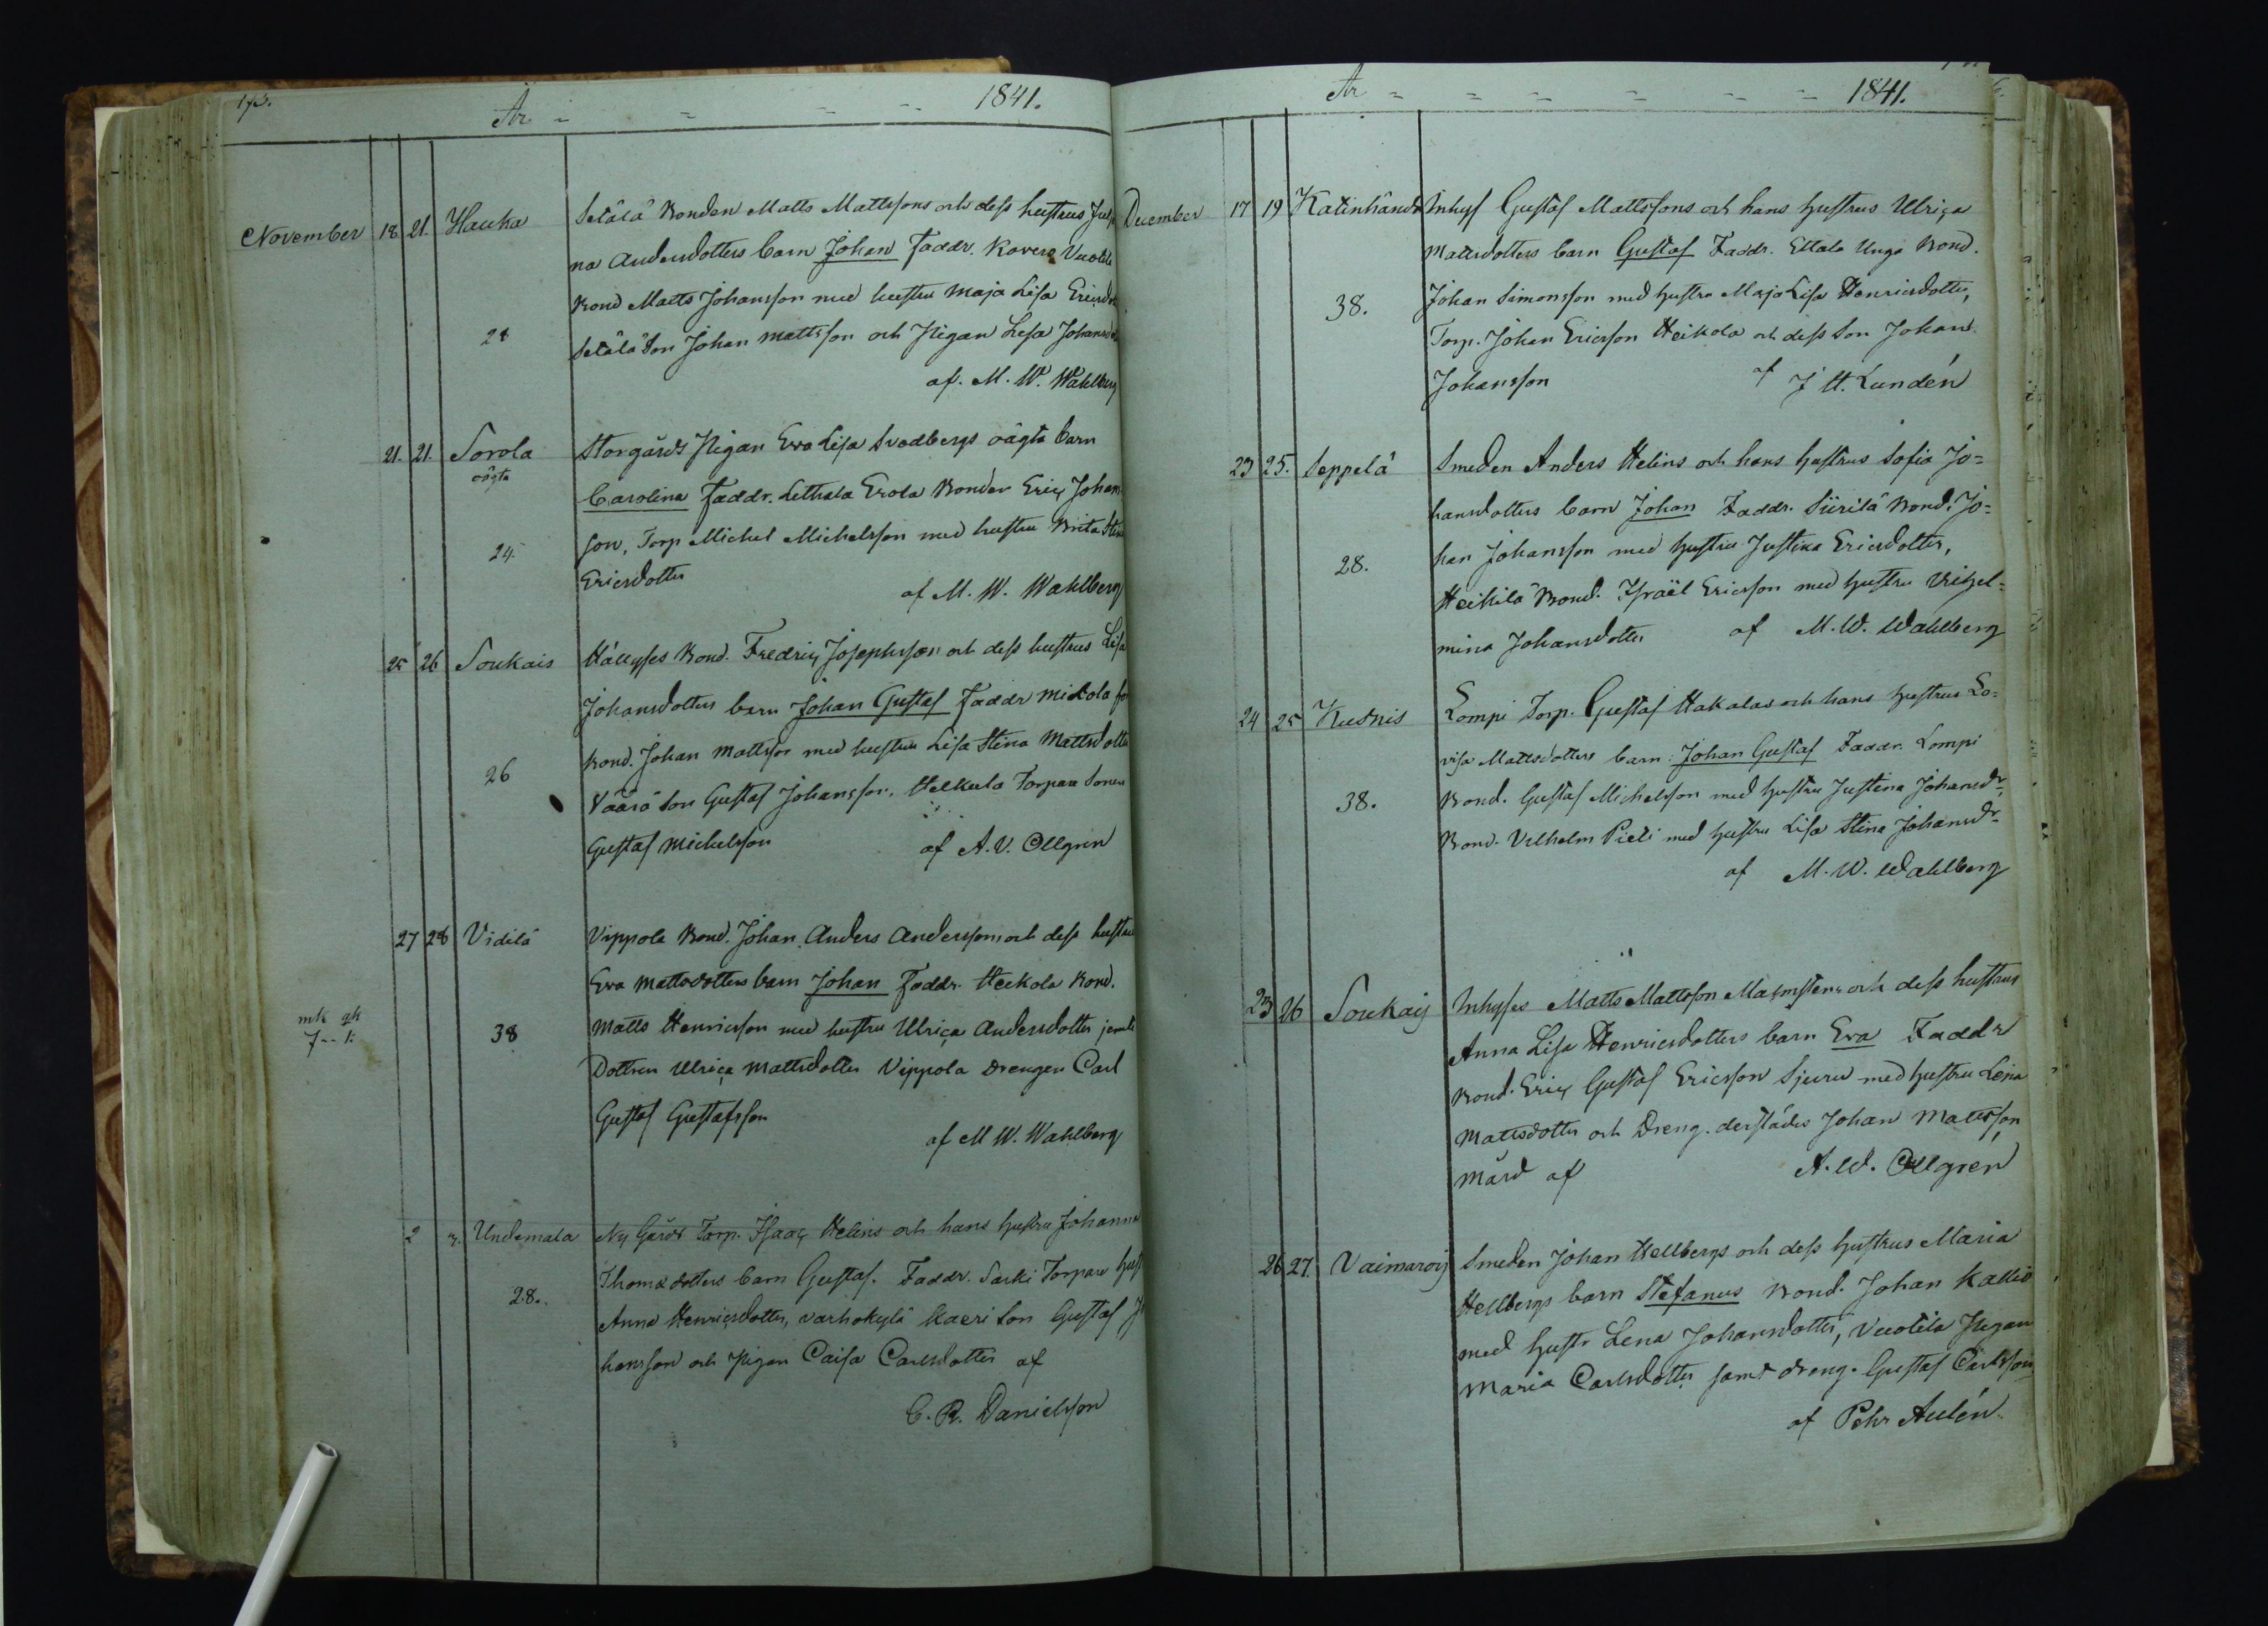 173.
År - - - - 1841.
November 18 21. Hauha Setälä Bonden Matts Mattssons och dess hustrus
na Andersdotters barn Johan Faddr. Rovero Vuotila
Bond Matts Johansson med hustru Maja Lisa Ericsdot
28 Setälä Son Johan Mattsson och Pigan Lisa Johansdot
af. M. W. Wahlberg
21. 21. Sorola Storgårds Pigan Eva Lisa Svedbergs oägta barn
oägta
Carolina Faddr. Lethala Erola Bonden Eric Johan
24. son, Torp Michel Michelsson med hustru Brita Stina
Ericsdotter af M. W. Wahlberg
25 26 Soukais Hållyses Bond. Fredric Josephsson och dess hustrus Lisa
Johansdotters barn Johan Gustaf Faddr Mickola
Bond. Johan Mattsson med hustru Lisa Stina Mattsdotter
26 Väärä Son Gustaf Johansson, Helkula Torpare Sonen
Gustaf Michelsson af A. V. Ollgren
27 28 Vidilä Vippola Bond. Johan Anders Anderssons och dess hustru
Eva Mattsdotters barn Johan Faddr. Heikola Bond.
38 Matts Henricsson med hustru Ulrica Andersdotter jemte
Dottren Ulrica Mattsdotter Vippola Drengen Carl
Gustaf Gustafsson
af M W. Wahlberg
mk gk
7 -- 1:
2 3. Undemala Ny Gårds Torp. Isaac Helins och hans hustru Johanna
Thomasdotters barn Gustaf. Faddr. Sarki Torpare hust
28. Anna Henricsdotter, Varhokylä Kaeri Son Gustaf Jo
hansson och Pigan Caisa Carlsdotter af
C. R. Danielsson
År - - - - - - 1841.
December 17 19 Katinhänd Inhys Gustaf Mattssons och hans hustrus Ulrica
Mattsdotters barn Gustaf Faddr. Ettala Unga Bond.
38. Johan Simonsson med hustru Maja Lisa Henricsdotter,
Torp. Johan Ericsson Heikola och dess Son Johan
Johansson af J H. Lundén
23 25. Seppelä Smeden Anders Helins och hans hustrus Sofia Jo=
hansdotters barn Johan Faddr. Siirilä Bond. Jo=
28. han Johansson med hustru Justina Ericsdotter,
Heikilä Bond. Israël Ericsson med hustru Vilhel=
mina Johansdotter af M. W. Wahlberg
24 25 Kusnis Lompi Torp. Gustaf Hakalas och hans hustrus Lo=
visa Mattsdotters barn: Johan Gustaf Faddr. Lompi
38. Bond. Gustaf Michelsson med hustru Justina Johansdr,
Bond. Vilhelm Pieti med hustru Lisa Stina Johansdr
af M. W. Wahlberg
23 26 Soukais Inhyses Matts Mattsson Malmstens och dess hustrus
Anna Lisa Henricsdotters barn Eva Faddr
Bond. Eric Gustaf Ericsson Sjuru med hustru Lena
Mattsdotter och Dreng. derstädes Johan Mattsson
Mård af A. W. Ollgren
26 27. Vaimaroij Smeden Johan Hellbergs och dess hustrus Maria
Hellbergs barn Stefanus Bond. Johan Kallio
med hustr Lena Johansdotter, Vuotila Pigan
Maria Carlsdotter samt dreng. Gustaf Carlsson
af Pehr Aulén.